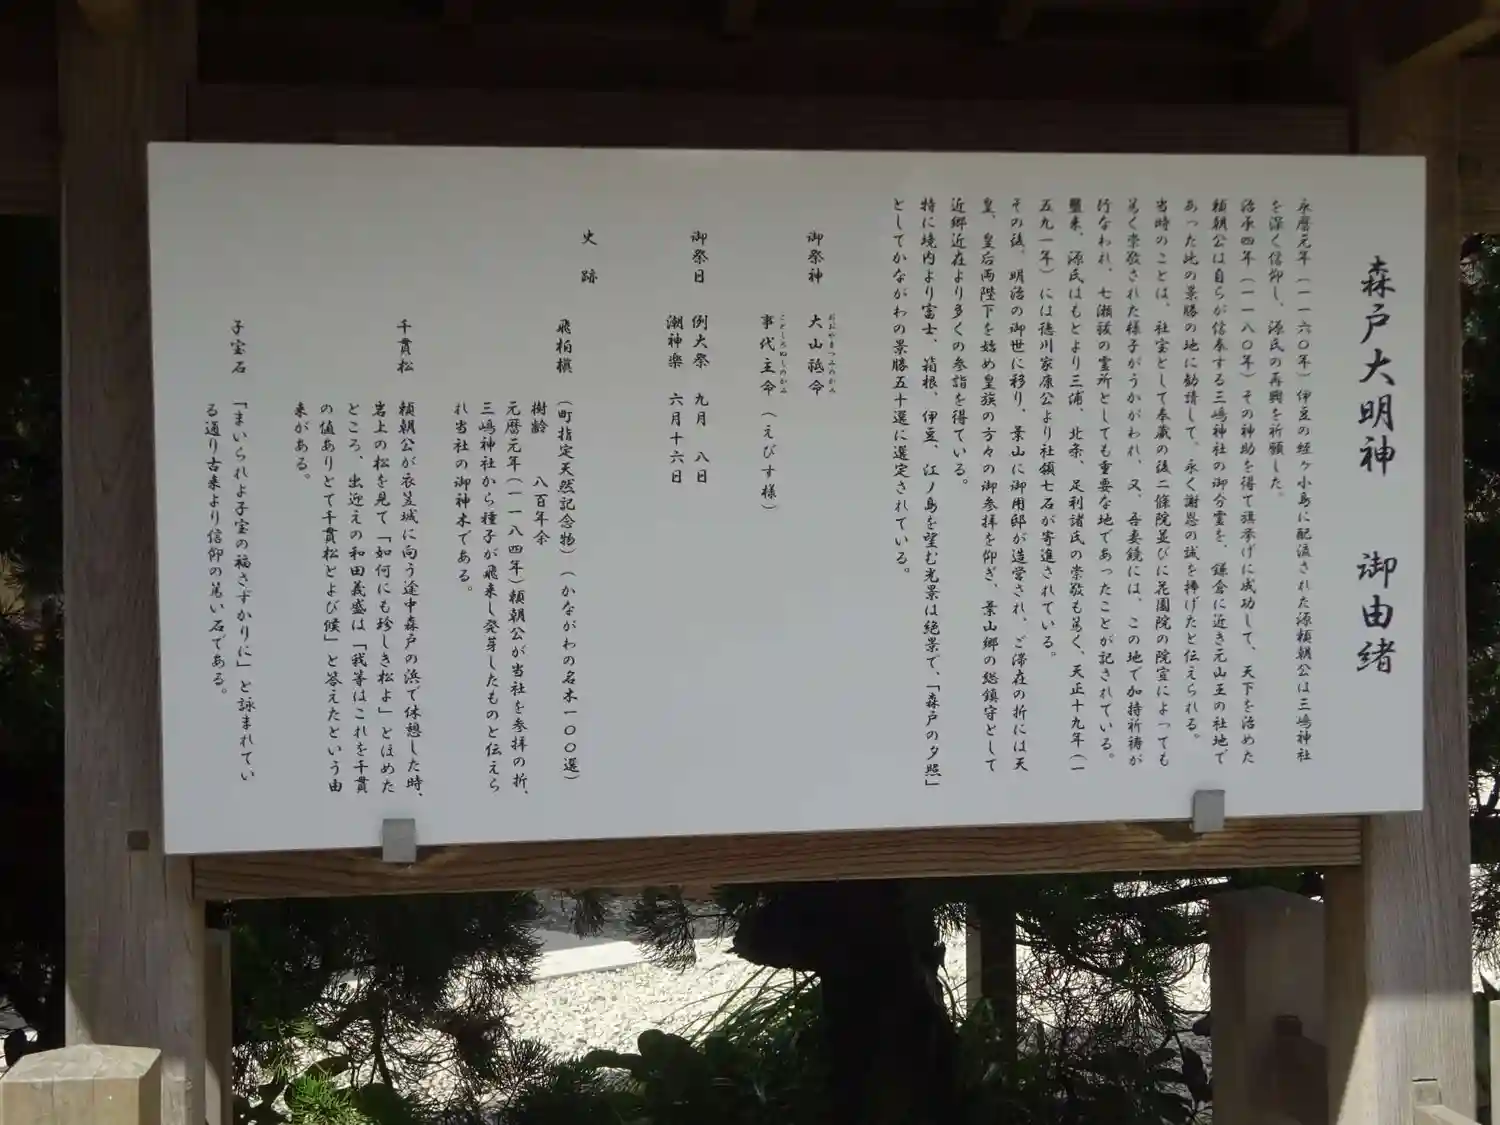 森戸大明神　御由緒
永暦元年（一一六〇年）伊豆の蛭ヶ小島に配流された源頼朝公は三嶋神社
を深く信仰し、源氏の再興を祈願した。
治承四年（一一八〇年）その神助を得て旗挙げに成功して、天下を治めた
頼朝公は自らが信奉する三嶋神社の御分霊を、鎌倉に近き元山王の社地で
あった此の景勝の地に勧請して、永く謝恩の誠を捧げたと伝えられる。
当時のことは、社宝として奉蔵の後二條院並びに花園院の院宣によっても
篤く崇敬された様子がうかがわれ、又、吾妻鏡には、この地で加持祈祷が
行なわれ、七瀬祓の霊所としても重要な地であったことが記されている。
爾来、源氏はもとより三浦、北条、足利諸氏の崇敬も篤く、天正十九年（一
五九一年）には徳川家康公より社領七石が寄進されている。
その後、明治の御世に移り、葉山に御用邸が造営され、ご滞在の折には天
皇、皇后両陛下を始め皇族の方々の御参拝を仰ぎ、葉山郷の総鎮守として
近郷近在より多くの参詣を得ている。
特に境内より富士、箱根、伊豆、江ノ島を望む光景は絶景で、「森戸の夕照」
としてかながわの景勝五十選に選定されている。
御祭神　大山祗命
おおやまつみのかみ
事代主命（えびす様）
ことしろぬしのかみ
御祭日　例大祭　九月　八日
潮神楽　六月十六日
史　跡
飛柏槇　（町指定天然記念物）（かながわの名木一〇〇選）
樹齢　八百年余
元暦元年（一一八四年）頼朝公が当社を参拝の折、
三嶋神社から種子が飛来し発芽したものと伝えら
れ当社の御神木である。
千貫松　頼朝公が衣笠城に向う途中森戸の浜で休憩した時、
岩上の松を見て「如何にも珍しき松よ」とほめた
ところ、出迎えの和田義盛は「我等はこれを千貫
の値ありとて千貫松とよび候」と答えたという由
来がある。
子宝石　「まいられよ子宝の福さずかりに」と詠まれてい
る通り古来より信仰の篤い石である。